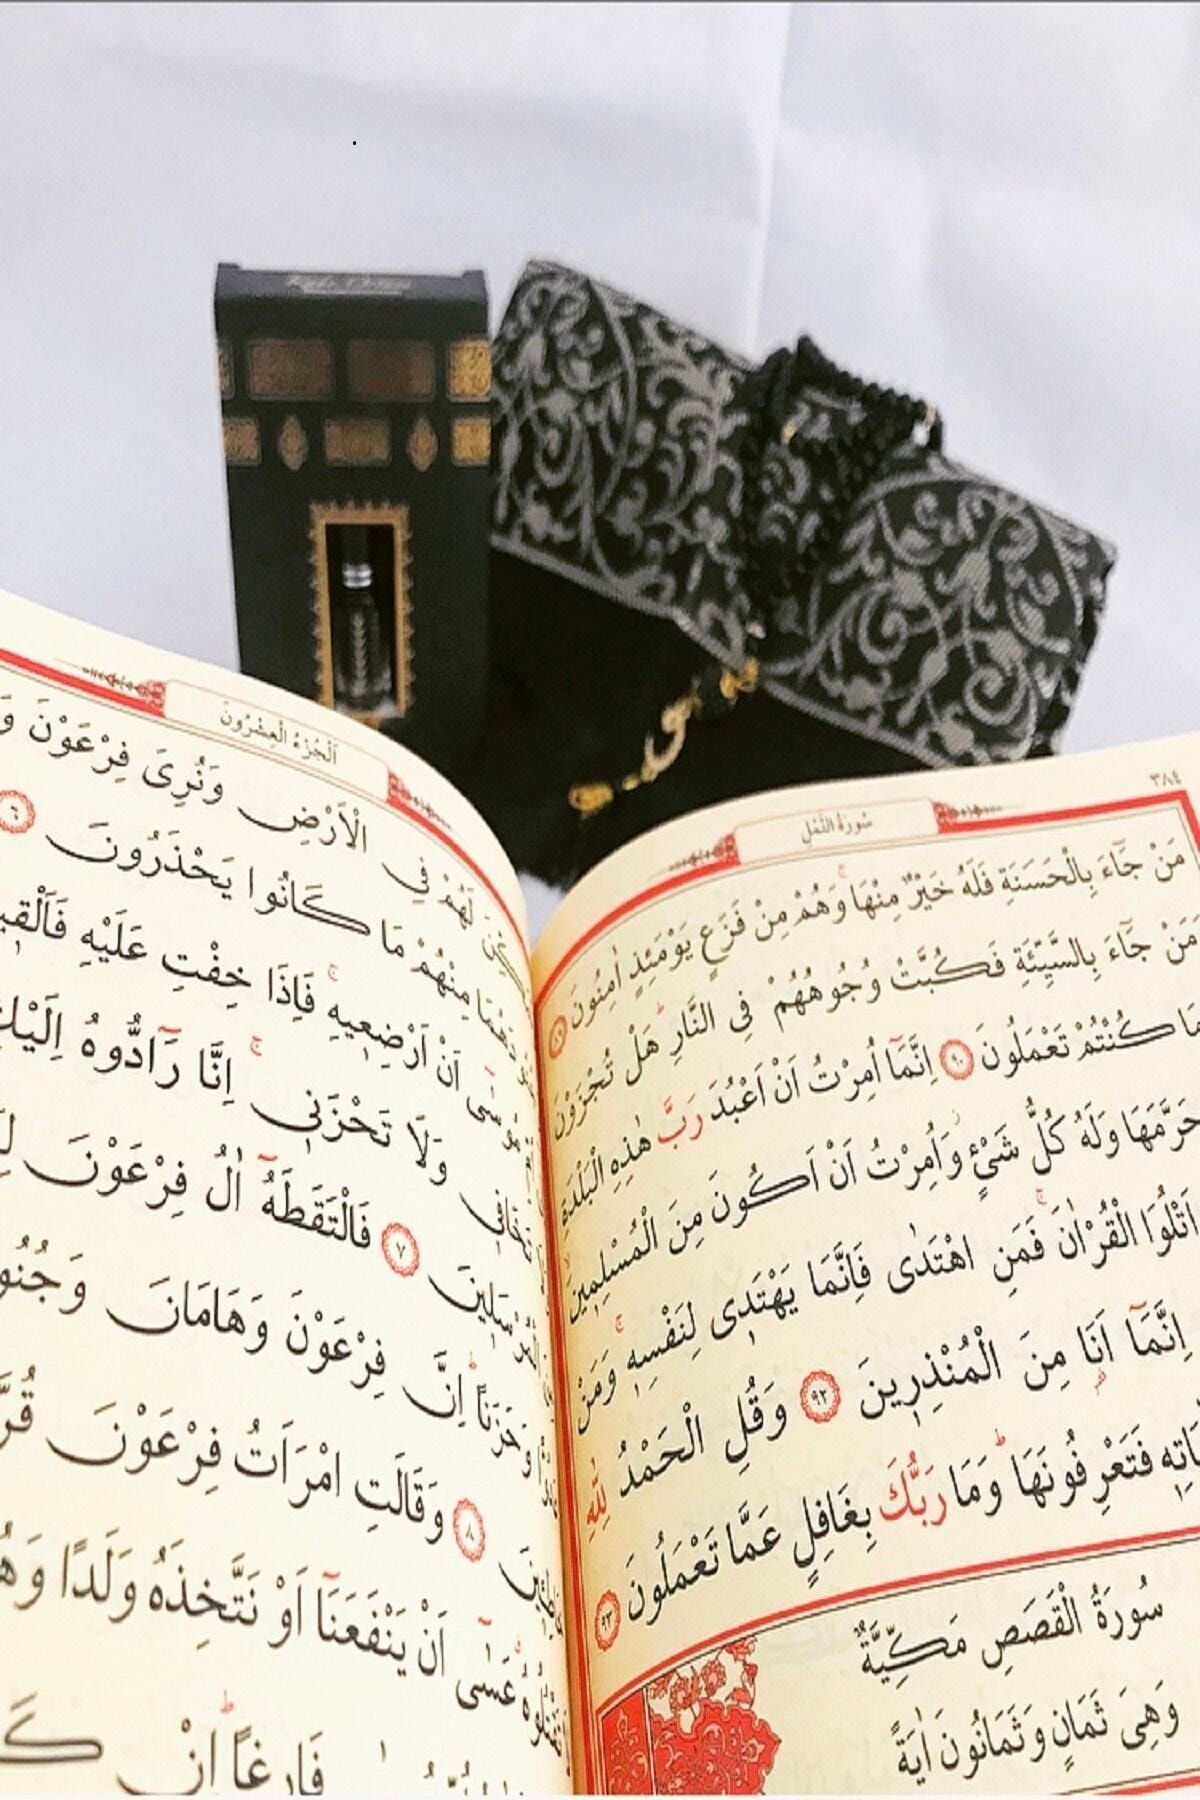 ٣٨٤
سُورَةُ النَّمْلِ
مَنْ جَٓاءَ بِالْحَسَنَةِ فَلَهُ خَيْرٌ مِنْهَا وَهُمْ مِنْ فَزَعٍ يَوْمَئِذٍ اٰمِنُونَ ٨٩
مَنْ جَٓاءَ بِالسَّيِّئَةِ فَكُبَّتْ وُجُوهُهُمْ فِي النَّارِ هَلْ تُجْزَوْنَ
مَا كُنْتُمْ تَعْمَلُونَ ٩٠ اِنَّمَٓا اُمِرْتُ اَنْ اَعْبُدَ رَبَّ هٰذِهِ الْبَلْدَةِ
حَرَّمَهَا وَلَهُ كُلُّ شَيْءٍ وَاُمِرْتُ اَنْ اَكُونَ مِنَ الْمُسْلِمِينَ
اَتْلُوَا الْقُرْاٰنَ فَمَنِ اهْتَدٰى فَاِنَّمَا يَهْتَدِى لِنَفْسِهِ وَمَنْ
اِنَّمَٓا اَنَا مِنَ الْمُنْذِرِينَ ٩٢ وَقُلِ الْحَمْدُ لِلّٰهِ
فَتَعْرِفُونَهَا وَمَا رَبُّكَ بِغَافِلٍ عَمَّا تَعْمَلُونَ ٩٣
سُورَةُ الْقَصَصِ مَكِّيَّةٌ
وَهِيَ ثَمَانٍ وَثَمَانُونَ اٰيَةً
اَلْجُزْءُ الْعِشْرُونَ
لَهُمْ فِي الْاَرْضِ وَنُرِيَ فِرْعَوْنَ
مِنْهُمْ مَا كَانُوا يَحْذَرُونَ ٦
اَنْ اَرْضِعِيهِ فَاِذَا خِفْتِ عَلَيْهِ
وَلَا تَحْزَنِى اِنَّا رَٓادُّوهُ اِلَيْكِ
٧ فَالْتَقَطَهُٓ اٰلُ فِرْعَوْنَ
وَحَزَنًا اِنَّ فِرْعَوْنَ وَهَامَانَ
٨ وَقَالَتِ امْرَاَتُ فِرْعَوْنَ
عَسٰٓى اَنْ يَنْفَعَنَٓا اَوْ نَتَّخِذَهُ وَلَدًا
فَارِغًا اِنْ